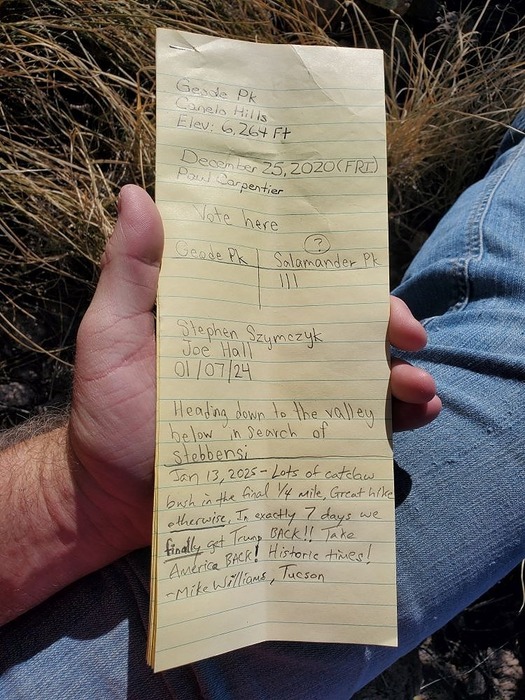 Geode Pk
Canelo Hills
Elev: 6,264 Ft
December 25, 2020 (FRI)
Paul Carpentier
Vote here
?
Geode Pk | Salamander Pk
III
Stephen Szymczyk
Joe Hall
01/07/24
Heading down to the valley
below in search of
stebbensi
Jan 13, 2025 - Lots of catclaw
bush in the final 1/4 mile, Great hike
otherwise, In exactly 7 days we
finally get Trump BACK!! Take
America BACK! Historic times!
- Mike Williams, Tucson